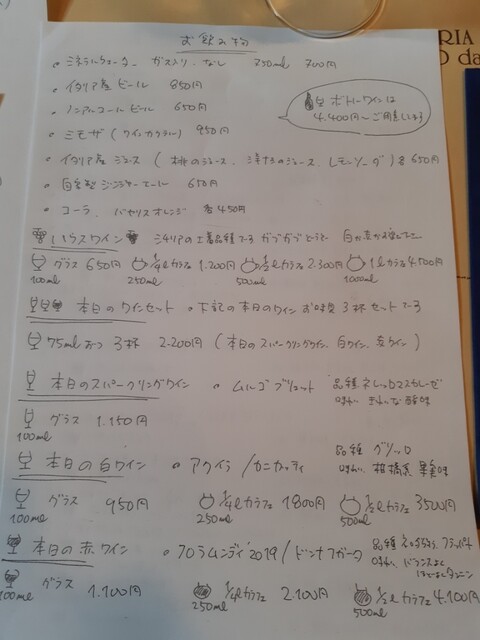 お飲み物
RIA
O da
・ミネラルウォーター ガス入り・なし 750ml 700円
・イタリア産 ビール 850円
・ノンアルコール ビール 650円
ボトルワインは
4.400円〜ご用意してます
・ミモザ (ワインカクテル) 950円
・イタリア産 ジュース ( 桃のジュース、洋ナシのジュース、レモンソーダ ) 各 650円
・自家製 ジンジャーエール 650円
・コーラ、バヤリスオレンジ 各 450円
ハウスワイン シチリアの土着品種です ガブガブどうぞ 白か赤かお選び下さい
グラス 650円 1/4ℓカラフェ 1.200円 1/2ℓカラフェ 2.300円 1ℓカラフェ 4.500円
100ml 250ml 500ml 1000ml
本日のワインセット ・下記の本日のワイン お味見 3杯 セットです
75mlずつ 3杯 2.200円 ( 本日のスパークリングワイン、白ワイン、赤ワイン )
本日のスパークリングワイン ・ムルゴ ブリュット 品種 ネレッロマスカレーゼ
味わい きれいな酸味
グラス 1.150円
100ml
本日の白ワイン ・アクイラ / カニカッティ 品種 グリッロ
味わい 柑橘系 果実味
グラス 950円 1/4ℓカラフェ 1800円 1/2ℓカラフェ 3500円
100ml 250ml 500ml
本日の赤ワイン ・フロラムンディ 2019 / ドンナフガータ 品種 ネロダヴォラ、フラッパート
味わい バランスよく
ほどよいタンニン
グラス 1.100円 1/4ℓカラフェ 2.100円 1/2ℓカラフェ 4.100円
100ml 250ml 500ml